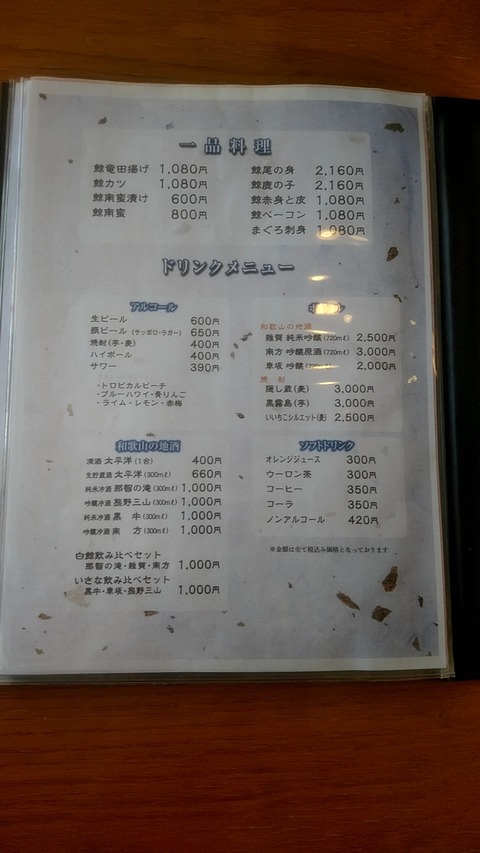 一品料理
鯨竜田揚げ 1,080円
鯨カツ 1,080円
鯨南蛮漬け 600円
鯨南蛮 800円
鯨尾の身 2,160円
鯨鹿の子 2,160円
鯨赤身と皮 1,080円
鯨ベーコン 1,080円
まぐろ刺身 1,080円
ドリンクメニュー
アルコール
生ビール 600円
瓶ビール (サッポロ・ラガー) 650円
焼酎(芋・麦) 400円
ハイボール 400円
サワー 390円
・トロピカルピーチ
・ブルーハワイ・青りんご
・ライム・レモン・赤梅
和歌山の地酒
雑賀 純米吟醸(720mℓ) 2,500円
南方 吟醸原酒(720mℓ) 3,000円
車坂 吟醸(720mℓ) 2,000円
焼 酎
隠し蔵(麦) 3,000円
黒霧島(芋) 3,000円
いいちこシルエット(麦) 2,500円
和歌山の地酒
清酒 太平洋(1合) 400円
生貯蔵酒 太平洋(300mℓ) 660円
純米冷酒 那智の滝(300mℓ) 1,000円
吟醸冷酒 熊野三山(300mℓ) 1,000円
純米冷酒 黒 牛(300mℓ) 1,000円
吟醸冷酒 南 方(300mℓ) 1,000円
白鯨飲み比べセット
那智の滝・雑賀・南方 1,000円
いさな飲み比べセット
黒牛・車坂・熊野三山 1,000円
ソフトドリンク
オレンジジュース 300円
ウーロン茶 300円
コーヒー 350円
コーラ 350円
ノンアルコール 420円
※金額は全て税込み価格となっております